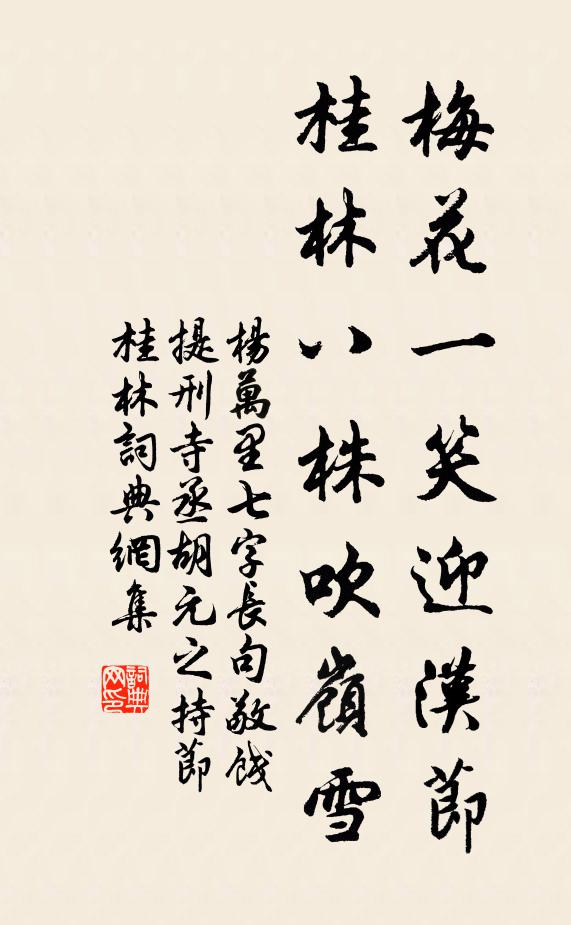 梅花一笑迎漢節
桂林八株吹嶺雪
楊萬里七字長句敬餞
提刑寺丞胡元之持節
桂林詞典網集
詞典
网印